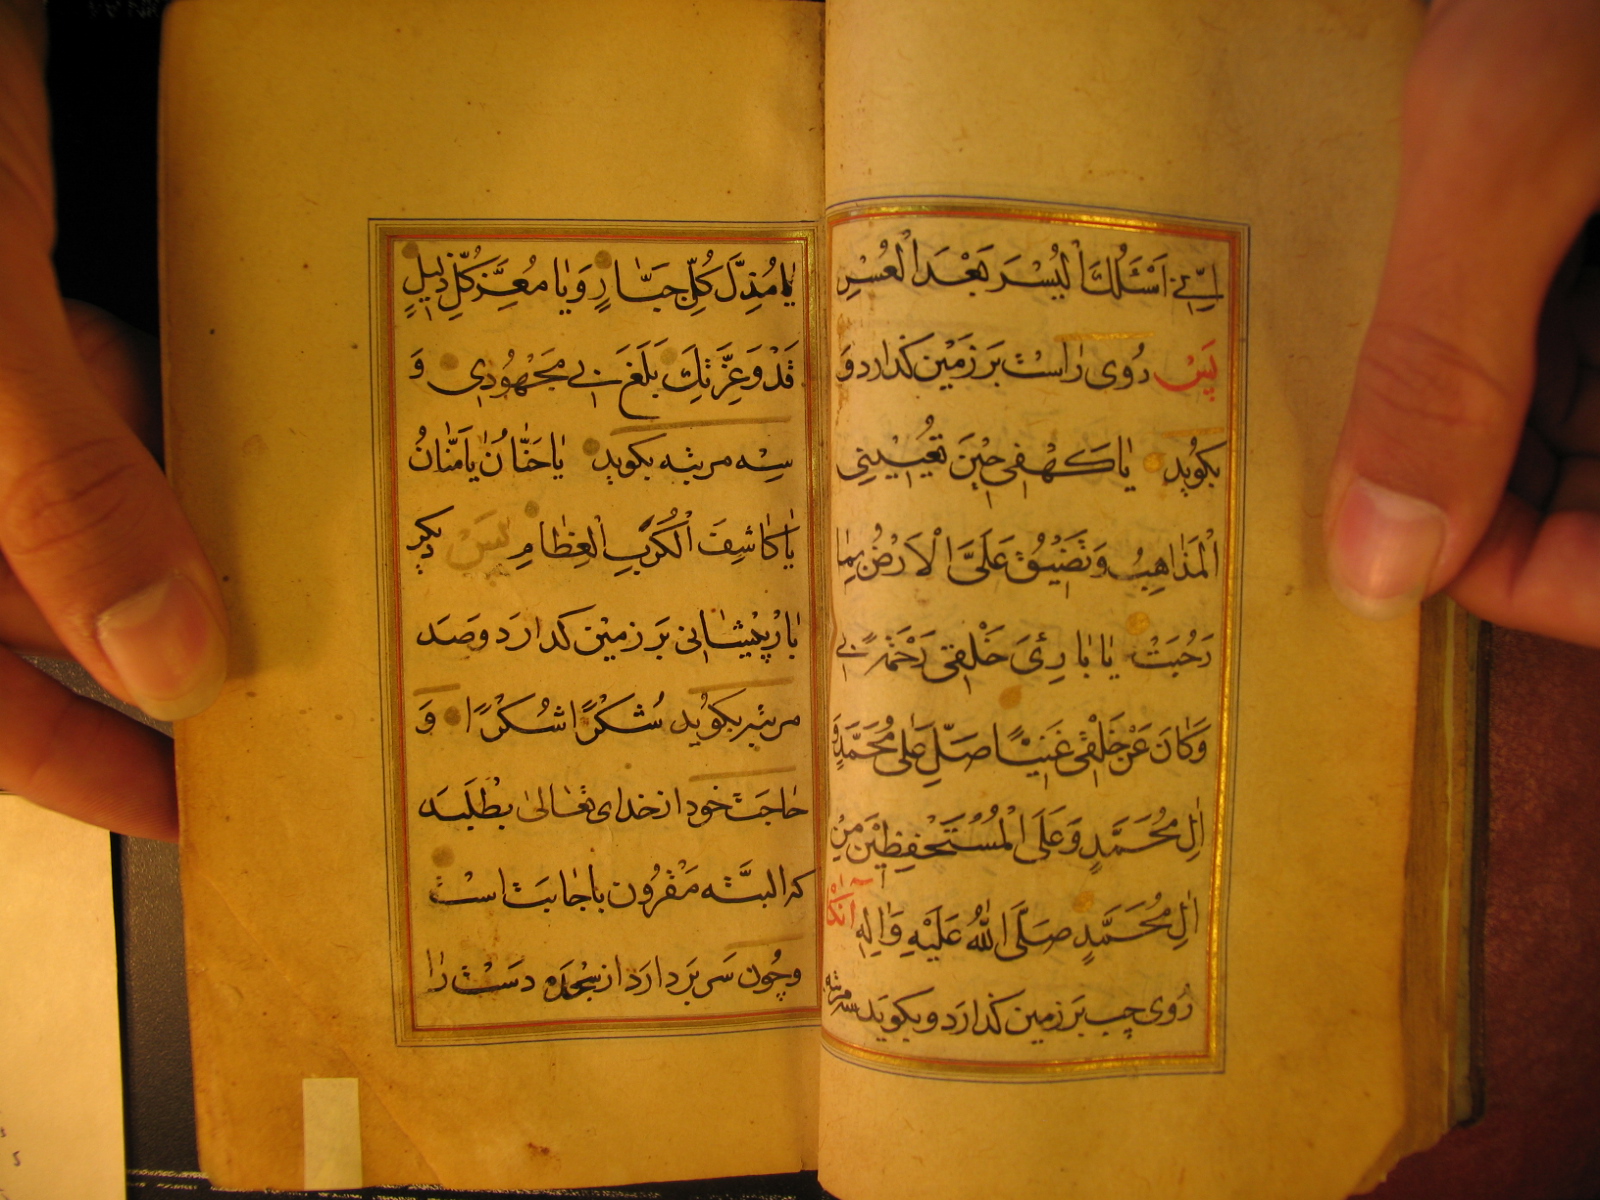 اِنِّي اَسْئَلُكَ الْيُسْرَ بَعْدَ الْعُسْرِ
پَس رُوی رٰاسْت بَر زَمیٖن کذارد وَ
بکوُید یٰا کَهْفٖی حیٖنَ تُعْیٖینِی
الْمَذٰاهِبُ وَتَضٖیٖقُ عَلَیَّ الْاَرْضُ بِمٰا
رَحُبَتْ یٰا بٰارِئَ خَلْقٖی رَحْمَةً بٖی
وَکٰانَ عَنْ خَلْقٖی غَنِیّٖاً صَلِّ عَلٰی مُحَمَّدٍ وَ
اٰلِ مُحَمَّدٍ وَعَلَی الْمُسْتَحْفِظٖیْنَ مِنْ
اٰلِ مُحَمَّدٍ صَلَّی اللّٰهُ عَلَیْهِ وَاٰلِهِ آنْکٰا
رُوی چپ بَر زمین کذارَد و بکوید سه مرتبه
یٰا مُذِلَّ کُلِّ جَبّٰارٍ وَیٰا مُعِزَّ کُلِّ ذَلیٖلٍ
قَدْ وَعِزَّتِكَ بَلَغَ بٖی مَجْهُودٖی وَ
سِه مرتبه بکوید یٰا حَنّٰانُ یٰا مَنّٰانُ
یٰا کٰاشِفَ الْکُرَبِ الْعِظٰامِ پَس دیکر
بٰار پیٖشٰانی بَر زمیْن کذارَد وصَد
مرتبه بکوُید شُکْرًا شُکْرًا وَ
حٰاجَت خود از خدای تعٰالیٰ بطْلبَد
که البتَّه مَقْرُون باجٰابَت اسْت
وچُون سَر بَر دارَد از سجْده دسَتْ رٰا